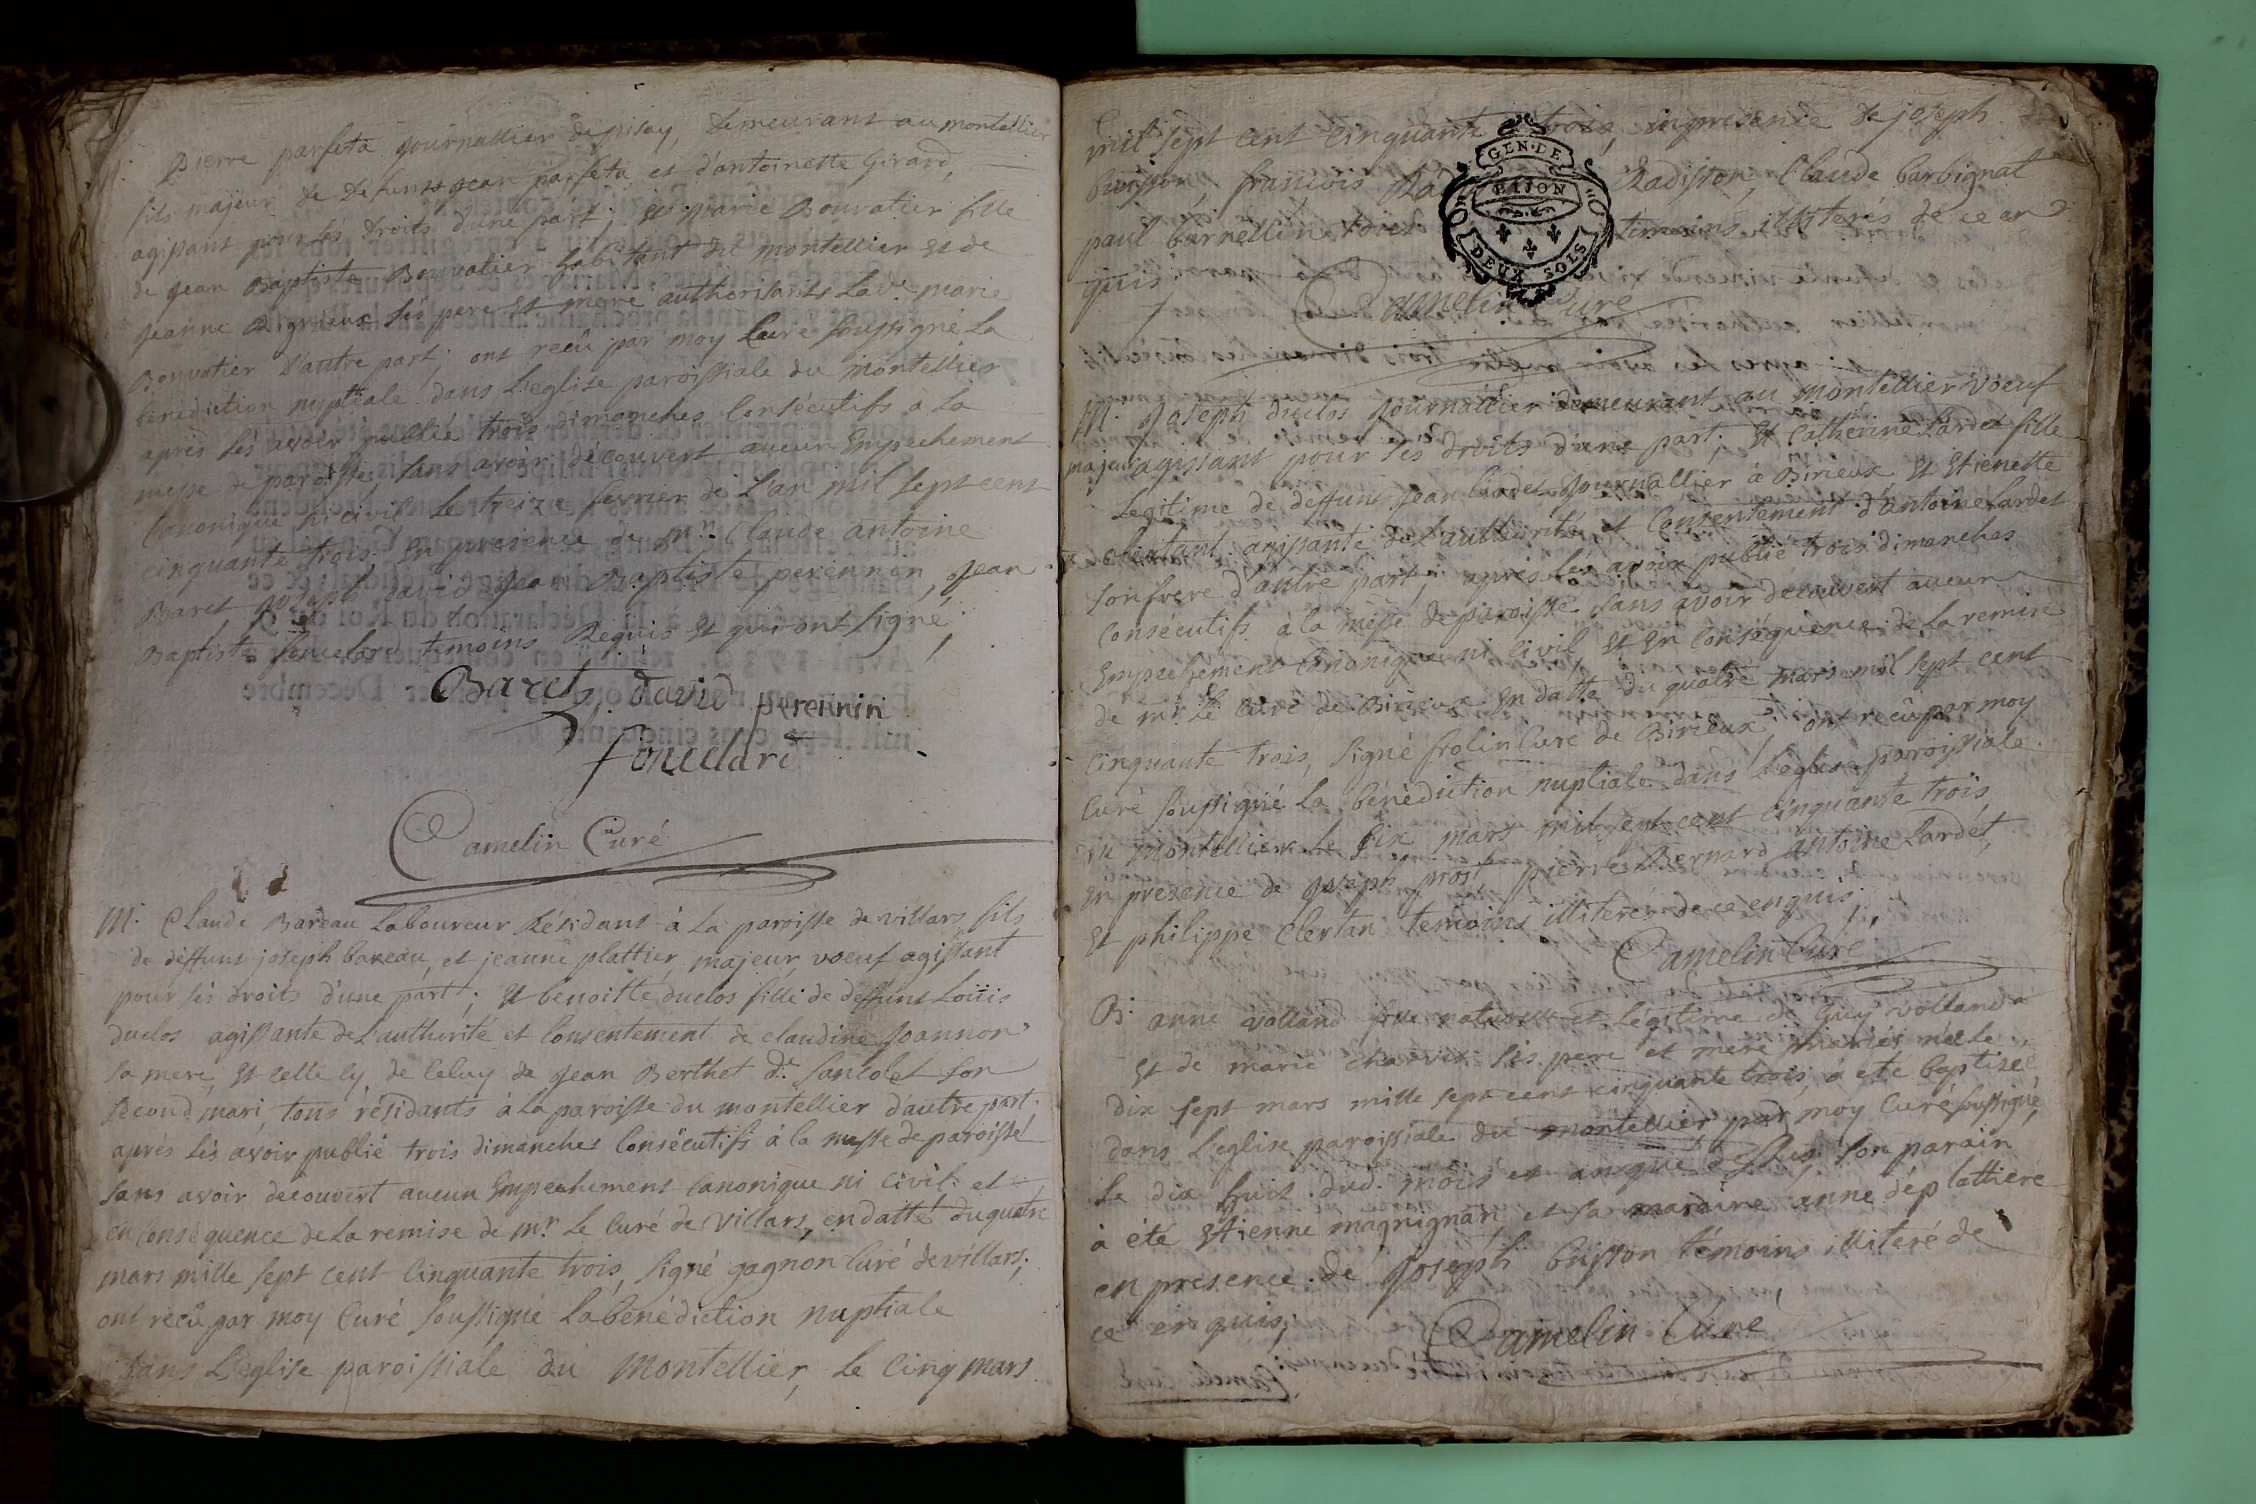 Pierre parfeta journallier de pisay, demeurant au montellier
fils majeur de defunt jean parfeta et d'antoinette Girard,
agissant pour ses droits d'une part; et marie Bouvatier fille
de jean Baptiste Bouvatier habitant du montellier et de
jeanne ses pere et mere authorisants lad.e marie
Bouvatier d'autre part; ont recû par moy Curé soussigné la
benediction nuptiale dans L'eglise paroissiale du montellier
après les avoir publié trois dimanches Consécutifs a la
messe de paroisse, sans avoir découvert aucun Empechement
Canonique ni civil le treize fevrier de l'an mil sept cent
cinquante trois. En presence de Mr. Claude antoine
Baret, joseph david, jean Baptiste perennin, jean
Baptiste temoins Requis et qui ont signé;
Baret david perennin
Camelin Curé
M. Claude Bareau Laboureur Résidant à la paroisse de villars fils
de deffunt joseph bareau, et jeanne plattier, majeur, voeuf agissant
pour ses droits d'une part; Et benoitte duclos fille de deffunt Loüis
duclos agissante de L'authorité et Consentement de claudine joannon
sa mere, Et celle cy de celuy de jean Berthet dt. Santolet son
second mari, tous résidants à la paroisse du montellier d'autre part;
après les avoir publié trois dimanches Consécutifs à la messe de paroisse
sans avoir decouvert aucun Empechement canonique ni civil et
en Conséquence de la remise de mr. Le Curé de Villars, en datte du quatre
mars mille sept cent Cinquante trois, signé gagnon Curé de villars;
ont recû par moy Curé soussigné la bénédiction nuptiale
dans L'eglise paroissiale du Montellier, le Cinq mars
mil sept cent Cinquante trois, en presence de joseph
buisson, francois Radisson, Claude barbignat
paul barnellin tous temoins illiterés de ce en
quis
GEN·DE
DIJON
DEUX SOLS
Camelin Curé
M. joseph duclos journallier demeurant au Montellier voeuf
majeur agissant pour ses droits d'une part; Et Catherine Lardet fille
Legitime de deffunt jean Lardet journallier à Birieux et Etienette
agissante de l'authorité et Consentement d'antoine Lardet
son frere d'autre part; après les avoir publié trois dimanches
Consécutifs à la messe de paroisse sans avoir découvert aucun
Empechement Canonique ni Civil, Et En Conséquence de la remise
de mr Le Curé de Birieux En datte du quatre mars mil sept cent
Cinquante trois, signé frolin Curé de Birieux, ont recû par moy
Curé soussigné la bénédiction nuptiale dans l'eglise paroissiale
du Montellier Le six mars mil sept cent cinquante trois,
en presence de joseph prost, pierre Bernard, antoine Lardet,
Et philippe Clertan temoins illiterés de ce enquis;
Camelin Curé
B. anne volland fille naturelle et Légitime de Guy volland
Et de marie ses pere et mere mariés née le
dix sept mars mille sept cent cinquante trois, a eté baptisée
dans L'eglise paroissiale du montellier par moy Curé soussigné,
le dix huit dud. mois et an que dessus son parain
a été Etienne magnignan et sa maraine anne déplattiere
en presence de joseph buisson témoins illiteré de
ce en quis;
Camelin Curé